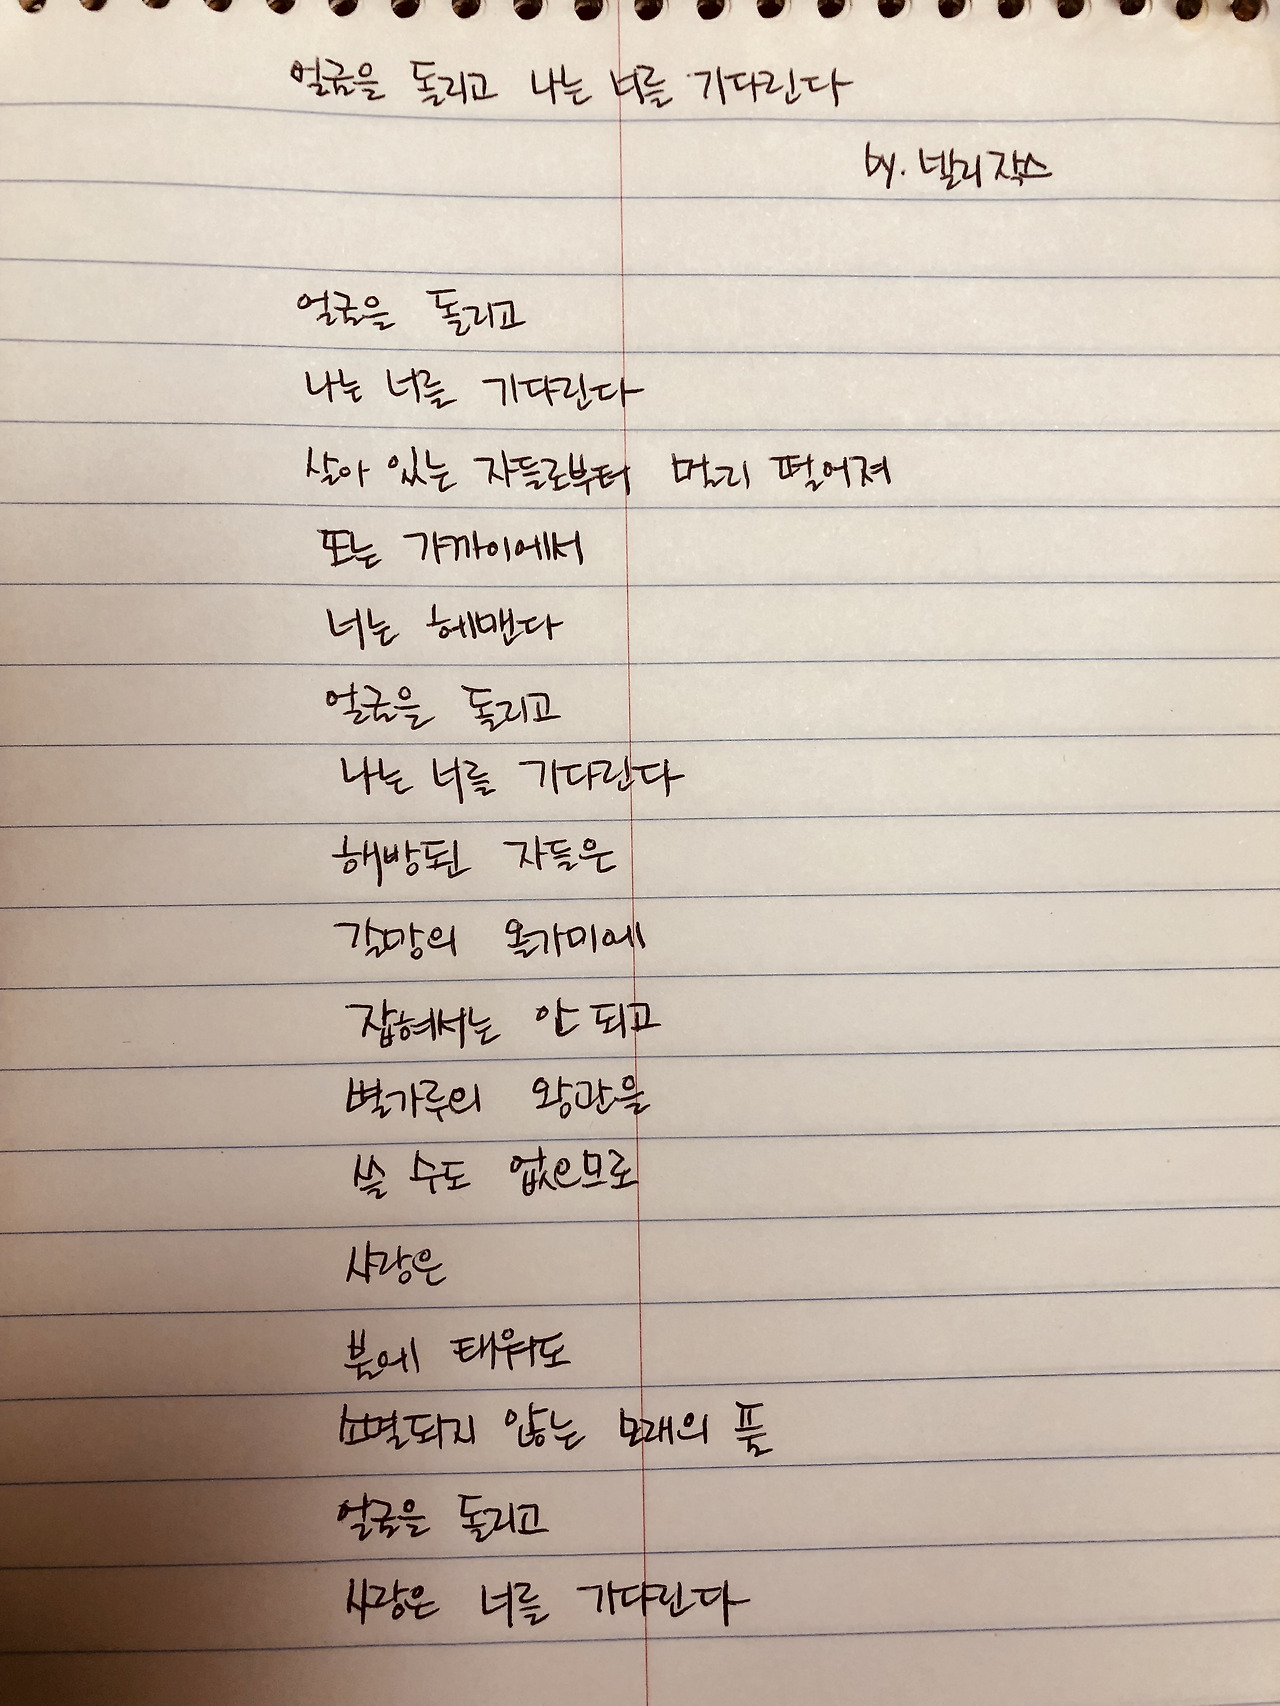 얼굴을 돌리고 나는 너를 기다린다
by. 넬리 작스
얼굴을 돌리고
나는 너를 기다린다
살아 있는 자들로부터 멀리 떨어져
또는 가까이에서
너는 헤맨다
얼굴을 돌리고
나는 너를 기다린다
해방된 자들은
갈망의 올가미에
잡혀서는 안 되고
별가루의 왕관을
쓸 수도 없으므로
사랑은
불에 태워도
소멸되지 않는 모래의 풀
얼굴을 돌리고
사랑은 너를 기다린다